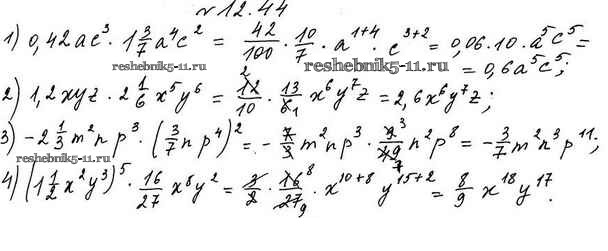 №12.44
1) 0,42ac³ · 1 3/7 a⁴c² = 42/100 · 10/7 · a¹⁺⁴ · c³⁺² = 0,06·10·a⁵c⁵ =
www.reshebnik5-11.ru www.reshebnik5-11.ru = 0,6a⁵c⁵;
2) 1,2xyz · 2 1/6 x⁵y⁶ = 12/10 · 13/6 x⁶y⁷z = 2,6x⁶y⁷z;
3) -2 1/3 m²np³ · (3/7 np⁴)² = - 7/3 m²np³ · 9/49 n²p⁸ = - 3/7 m²n³p¹¹;
www.reshebnik5-11.ru
4) (1 1/2 x²y³)⁵ · 16/27 x⁸y² = 3/2 · 16/27 · x¹⁰⁺⁸ y¹⁵⁺² = 8/9 x¹⁸y¹⁷.